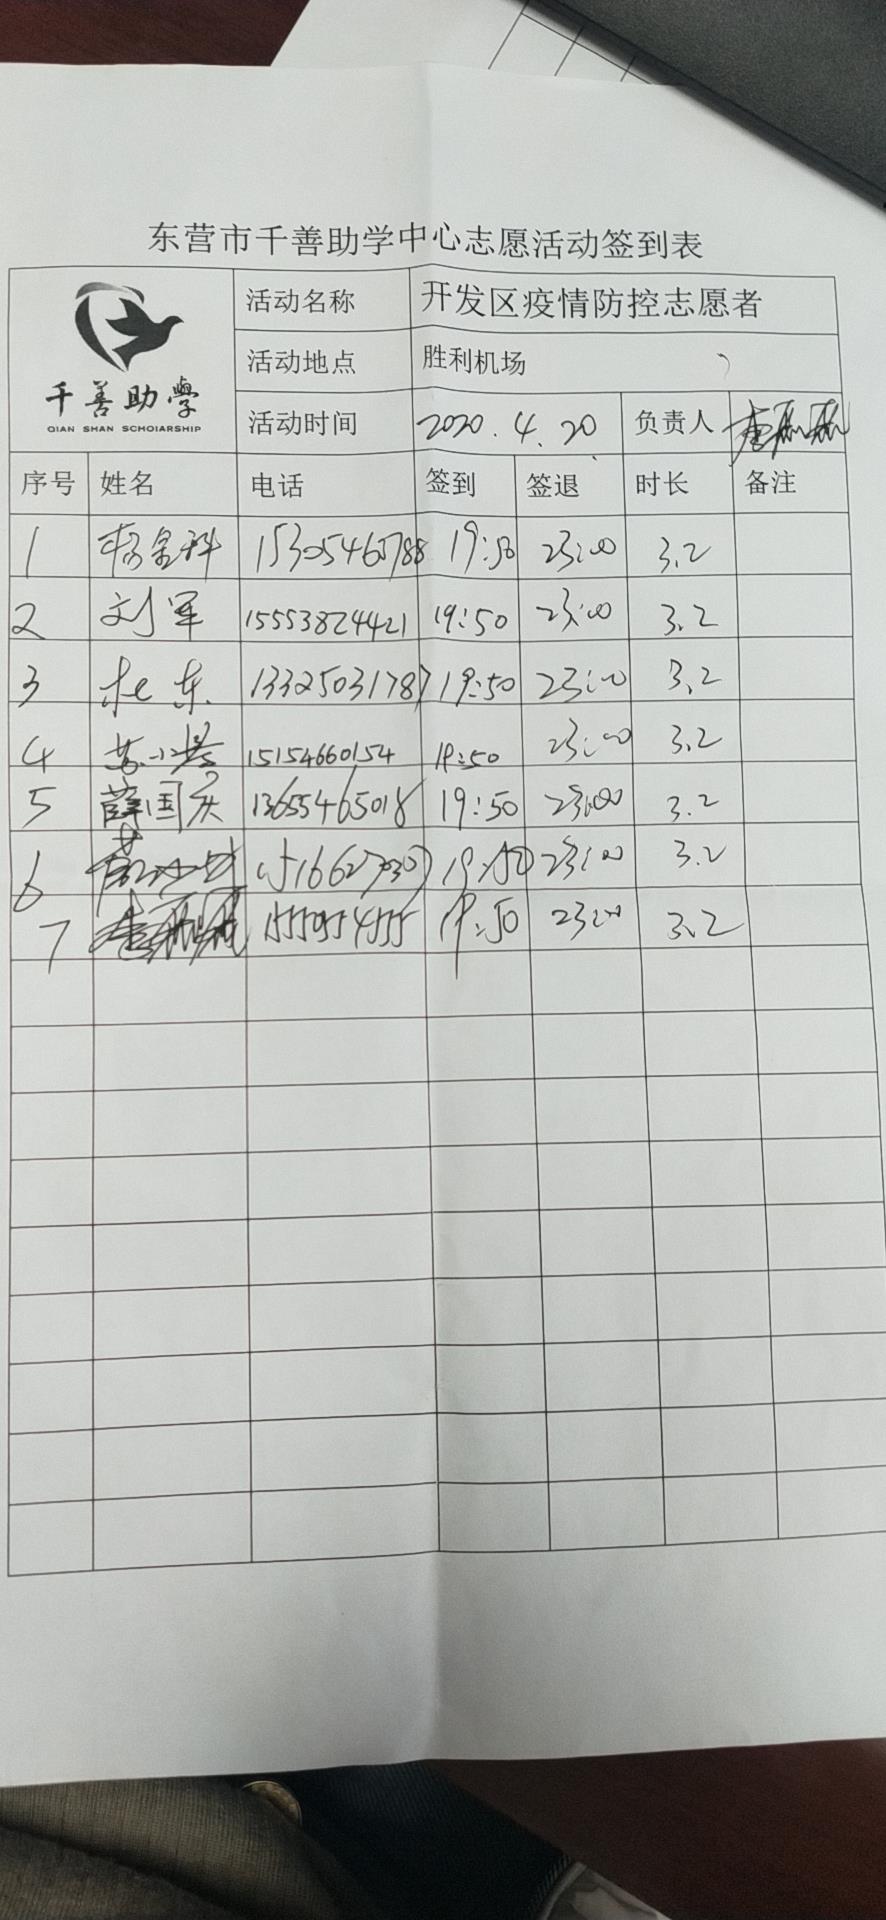 东营市千善助学中心志愿活动签到表
千善助學
QIAN SHAN SCHOlARSHIP
活动名称 开发区疫情防控志愿者
活动地点 胜利机场
活动时间 2020.4.20 负责人
序号 姓名 电话 签到 签退 时长 备注
1 15305465788 19:50 23:00 3.2
2 刘军 15553824421 19:50 23:00 3.2
3 杜东 13325031787 19:50 23:00 3.2
4 苏小 15154660154 19:50 23:00 3.2
5 薛国庆 13655465018 19:50 23:00 3.2
6 19:50 23:00 3.2
7 19:50 23:00 3.2